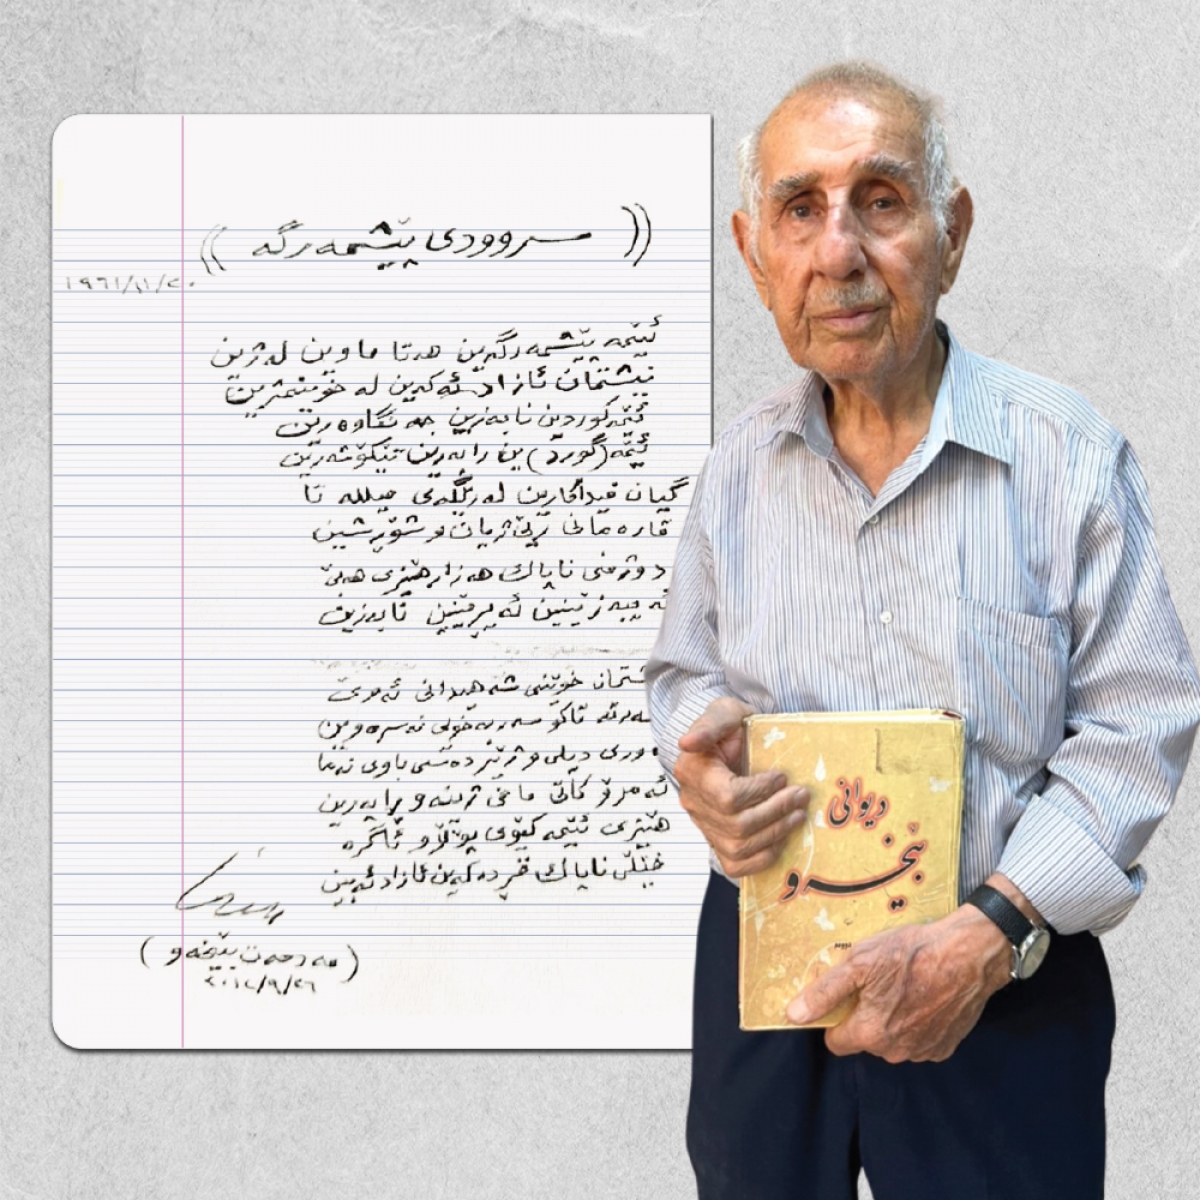 (( سروودی پێشمەرگە ))
١٩٦١/١١/٢٠
ئێمە پێشمەرگەین هەتا ماوین لەژین
نیشتمان ئازاد ئەکەین لە خوێنمژین
ئێمە کوردین نابەزین جەنگاوەرین
ئێمە (گورد)ین راپەرین تێکۆشەرین
گیان فیداکارین لەرێگەی میللەتا
قارەمانی رێی ژیان و شۆرشین
دوژمنی ناپاک هەزار هێزی هەبێ
ئەیبەزێنین ئەیبرێنین نابەزین
خوێنی شەهیدانی ئەوێ
تاکو سەربەخۆیی نەسرەوین
دیلی و ژێردەستی باوی نەما
ئەمرۆ کاتی مافی ژینە و راپەرین
هێزی ئێمە کێوی پۆڵاو ئاگرە
خێڵی ناپاک قڕ دەکەین ئازاد ئەبین
(مەدحەت بێخەو)
٢٠١٤/٩/٢٦
دیوانی
بێخەو